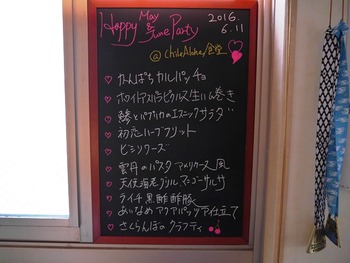 Happy May & June Party
2016.
6.11
@ChileAloha/食堂
♡ かんぱちカルパッチョ
♡ ホワイトアスパラピクルス生ハム巻き
♡ 鯵とパプリカのエスニックサラダ
♡ 初恋ハーブフリット
♡ ビシソワーズ
♡ 雲丹のパスタ アメリケーヌ風
♡ 天使海老グリル マンゴーサルサ
♡ ライチ黒酢酢豚
♡ あいなめアクアパッツァ仕立て
♡ さくらんぼのクラフティ